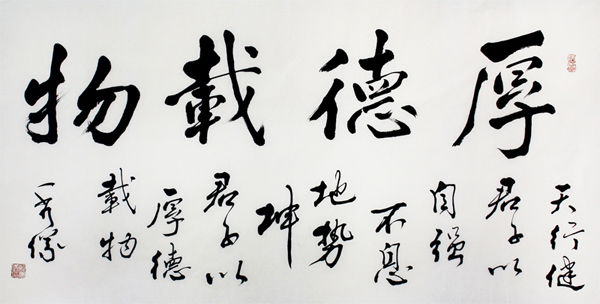 厚德載物
天行健
君子以
自强
不息
地勢
坤
君子以
厚德
載物